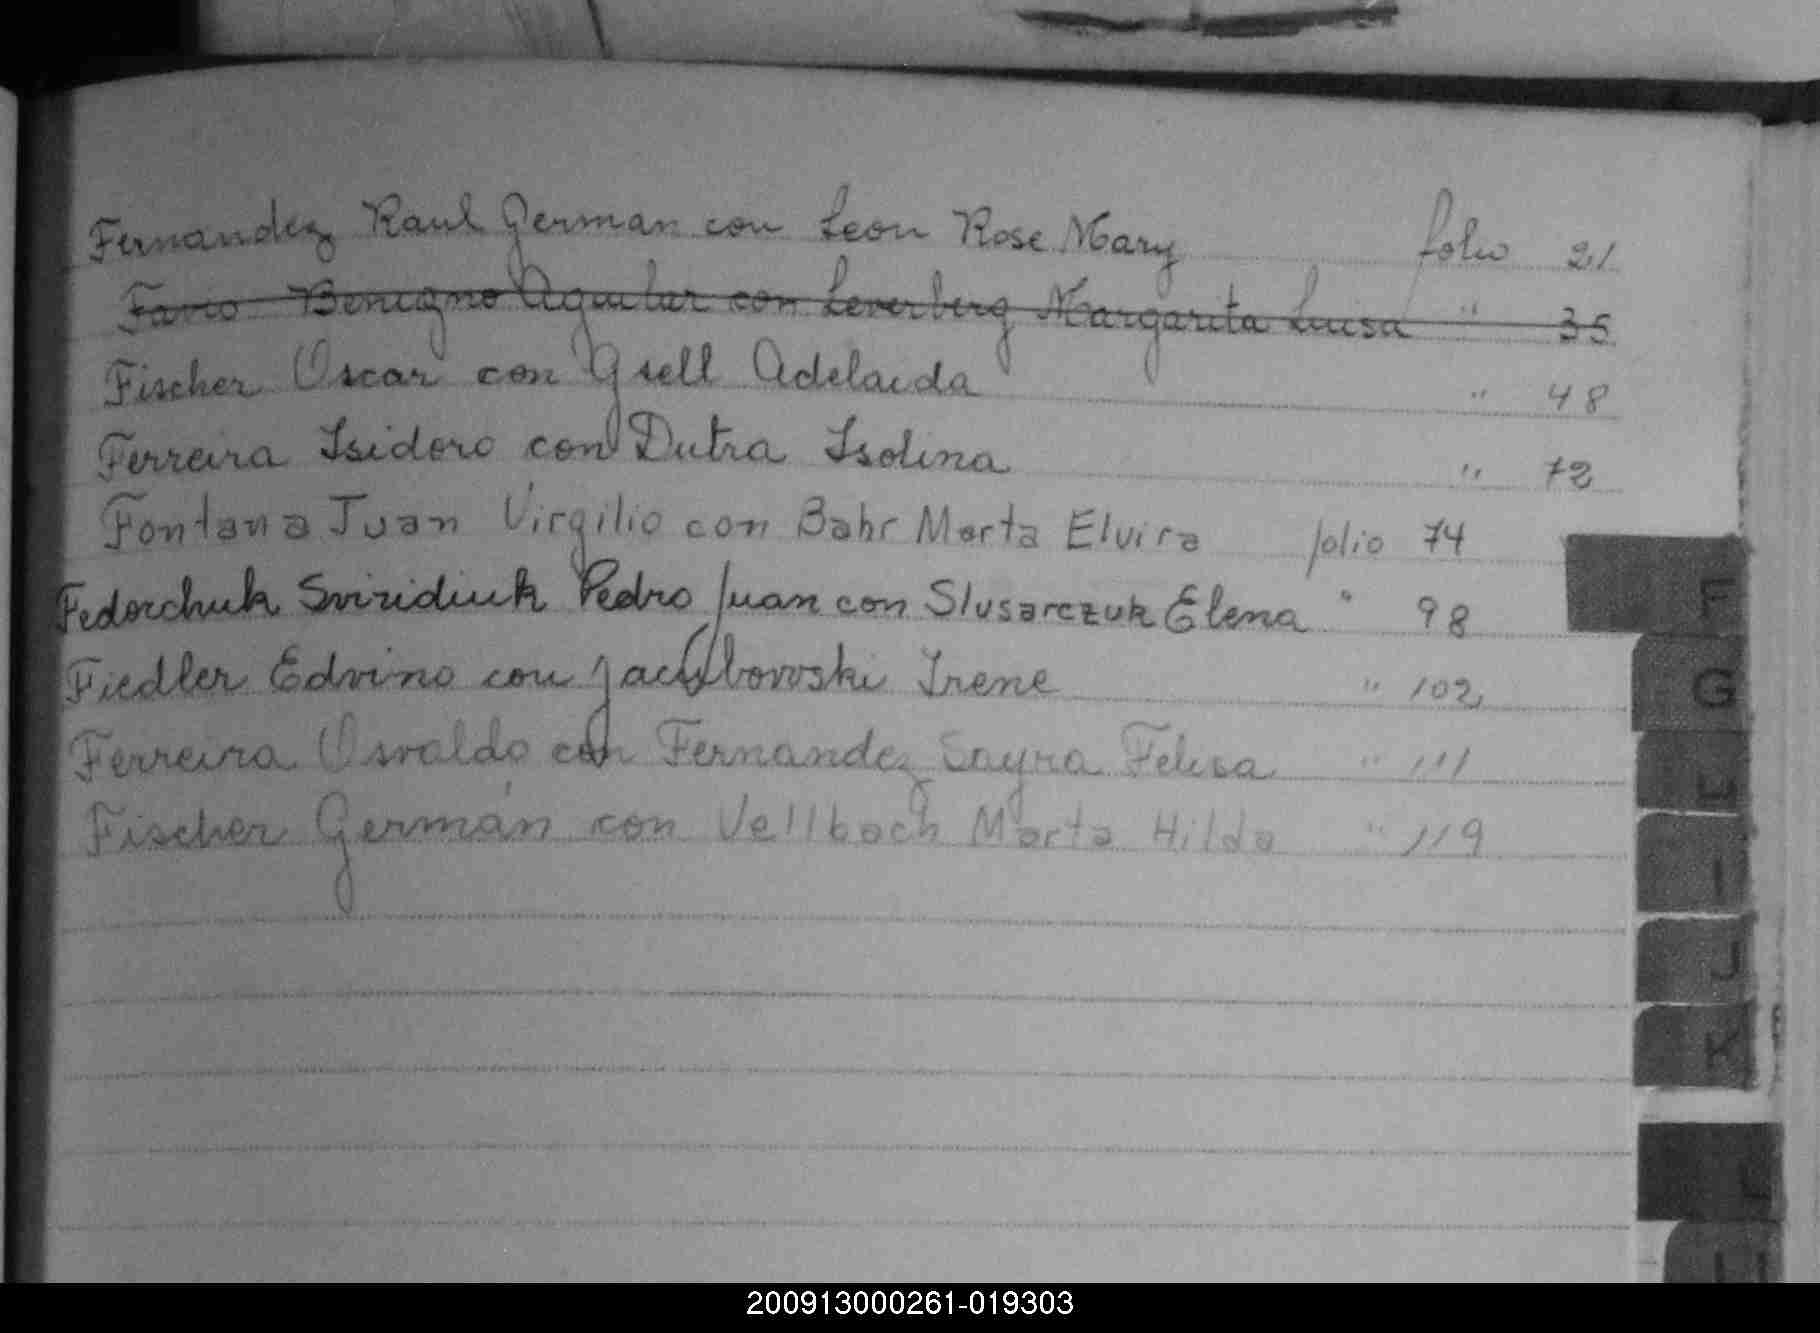 Fernandez Raul German con Leon Rose Mary folio 21
Favio Benigno Aguilar con Leverberg Margarita Luisa " 35
Fischer Oscar con Gsell Adelaida " 48
Ferreira Isidoro con Dutra Isolina " 72
Fontana Juan Virgilio con Bahr Marta Elvira folio 74
Fedorchuk Sviridiuk Pedro Juan con Slusarczuk Elena " 98
F
Fiedler Edvino con Jacubovski Irene " 102
G
Ferreira Osvaldo con Fernandez Sayra Felisa " 111
Fischer Germán con Vellbach Marta Hilda " 119
I
J
K
L
200913000261-019303